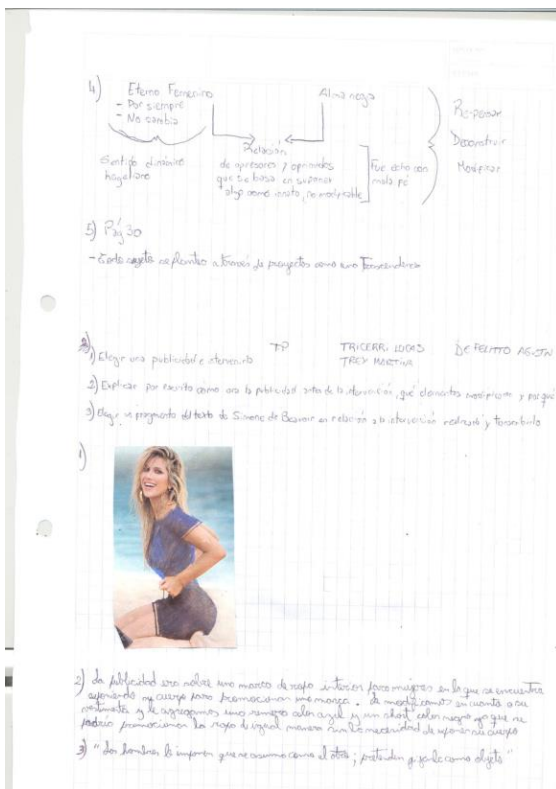 4) Eterno Femenino
- Por siempre
- No cambia
Alma negra
Re-pensar
Deconstruir
Modificar
Sentido dinámico
hegeliano
Relación
de opresores y oprimidos
que se basa en suponer
algo como innato, no modificable
Fue echo con
mala fé
5) Pág 30
- Todo sujeto se plantea a través de proyectos como una Trascendencia
TP
TRICERRI LUCAS
TREY MARTINA
1) Elegir una publicidad e intervenirla
2) Explicar por escrito como era la publicidad antes de la intervención, qué elementos modificaron y por qué
3) Elegir un fragmento del texto de Simone de Beauvoir en relación a la intervención y transcribirlo
1)
2) La publicidad era sobre una marca de ropa interior para mujeres en la que se encuentra
exponiendo su cuerpo para promocionar una marca. La modificamos en cuanto a su
vestimenta y le agregamos una remera color azul y un short color negro ya que se
podría promocionar la ropa de igual manera sin la necesidad de exponer su cuerpo
3) "Los hombres le imponen que se asuma como el otro; pretenden fijarla como objeto"